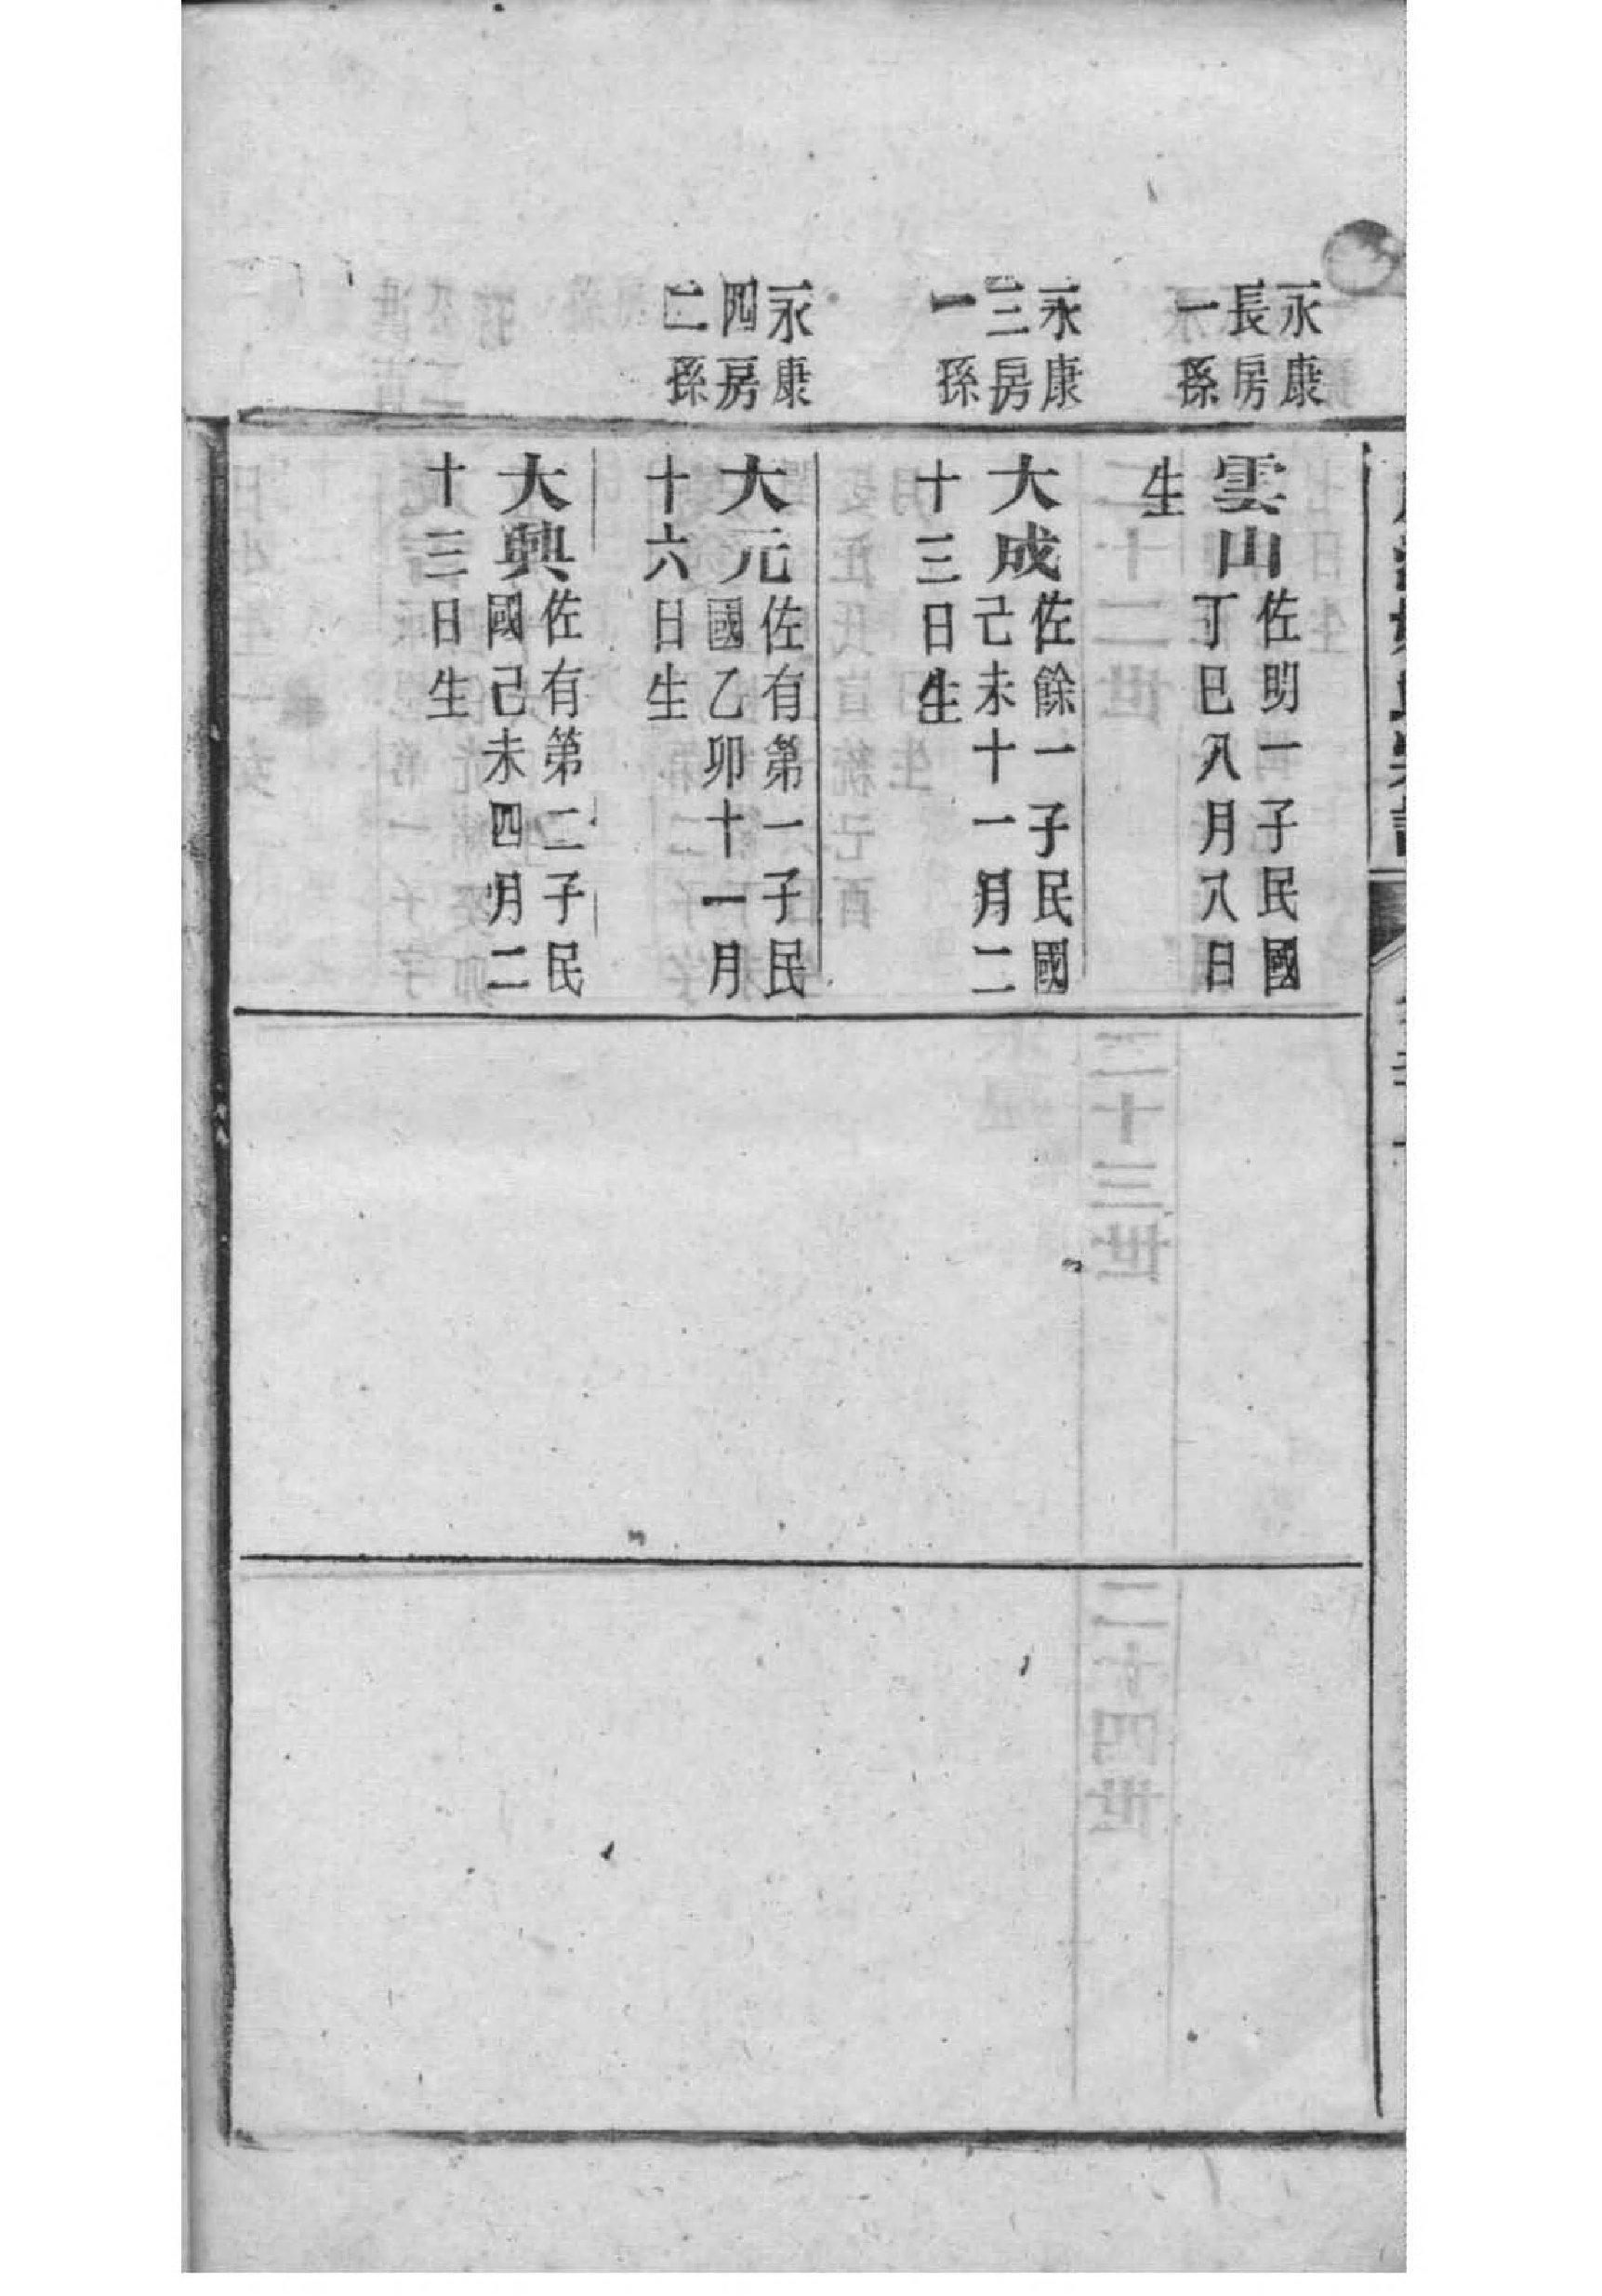 永康
長房
一孫
雲山佐明一子民國
丁巳八月八日
生
永康
三房
一孫
大成佐餘一子民國
己未十一月二
十三日生
永康
四房
二孫
大元佐有第一子民
國乙卯十一月
十六日生
大興佐有第二子民
國己未四月二
十三日生